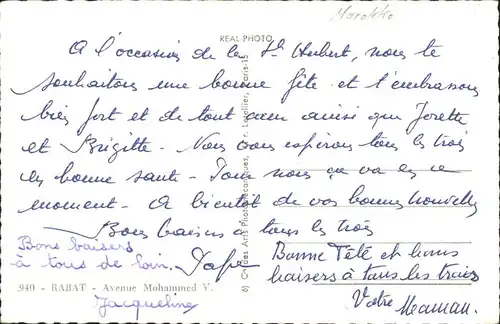 Marokko
REAL PHOTO
A l'occasion de la St Hubert, nous te
souhaitons une bonne fête et t'embrassons
bien fort et de tout cœur ainsi que Josette
et Brigitte - Nous vous espérons tous les trois
en bonne santé - Pour nous ça va en ce
moment - A bientôt de vos bonnes nouvelles
Bons baisers à tous les trois
Papa
Bons baisers
à tous de loin.
Jacqueline
Bonne Fête et bons
baisers à tous les trois
Votre Maman.
940 - RABAT - Avenue Mohammed V.
des Arts Photomécaniques, Paris-15